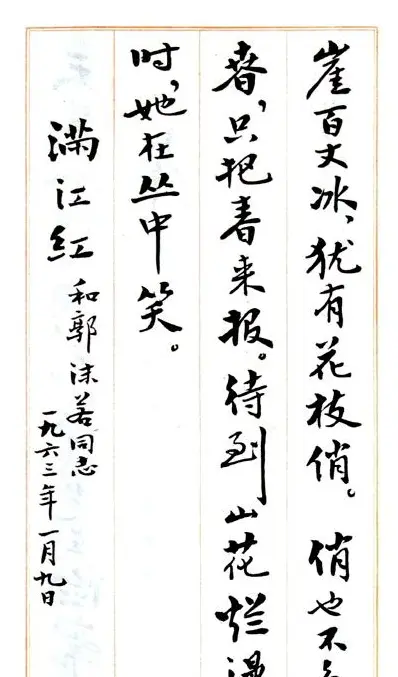 崖百丈冰，犹有花枝俏。俏也不
春，只把春来报。待到山花烂漫
时，她在丛中笑。
满江红
和郭沫若同志
一九六三年一月九日